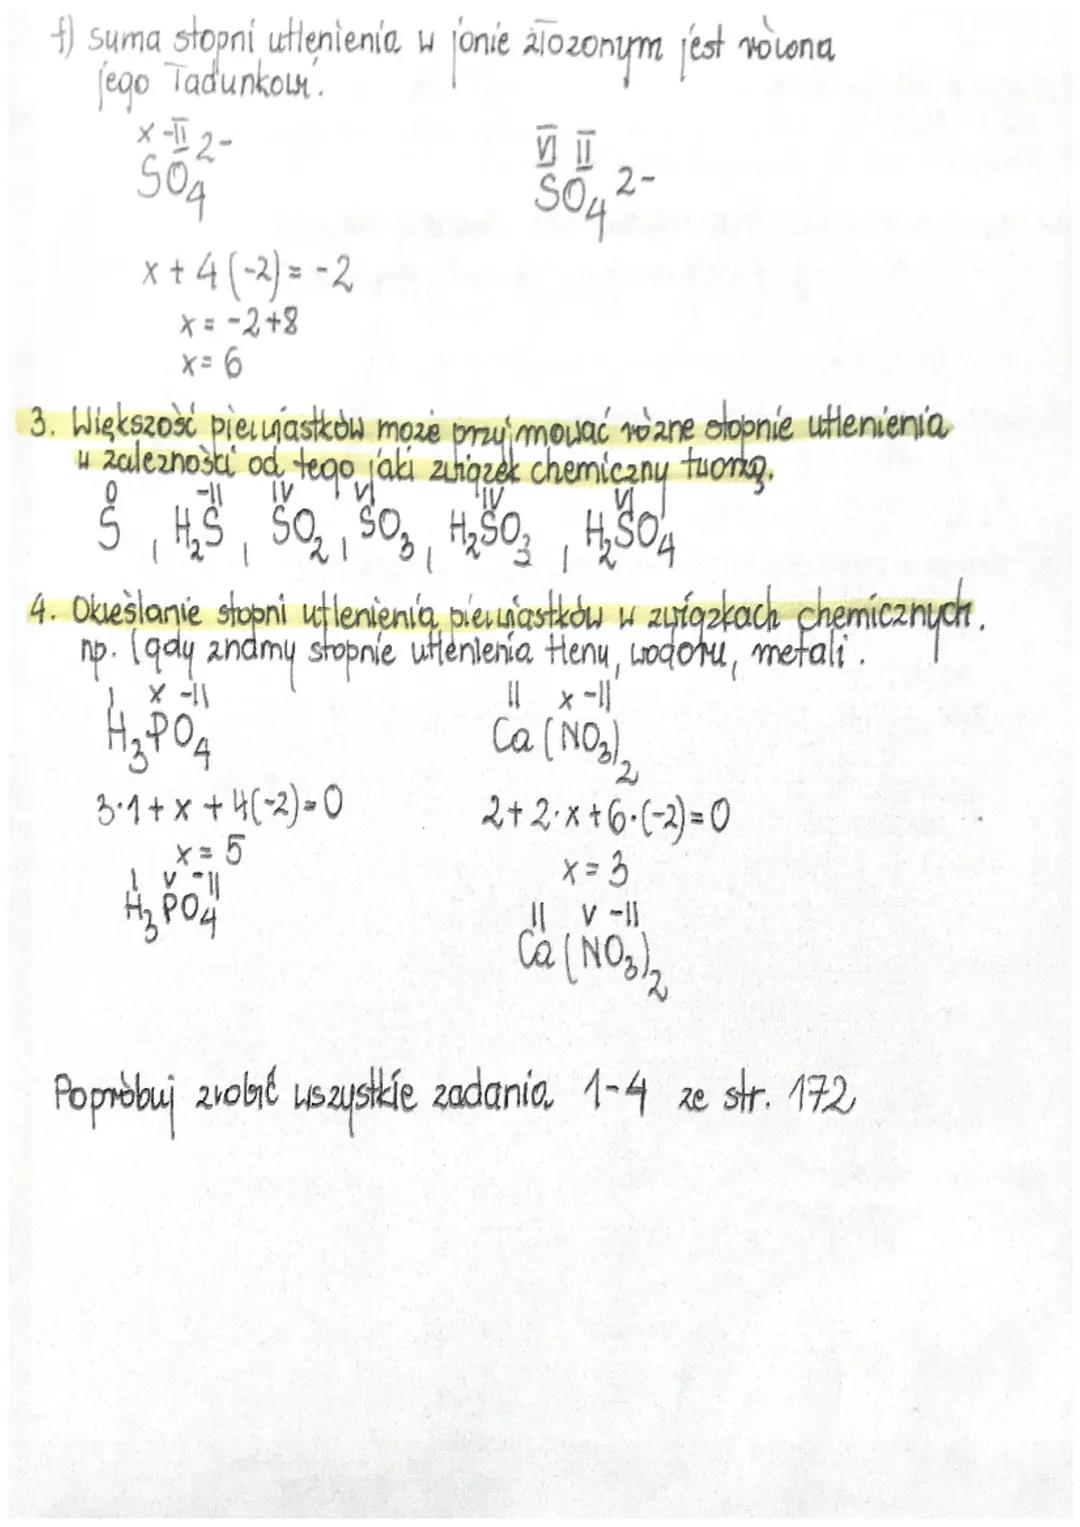 f) suma stopni utlenienia w jonie złożonym jest równa
jego ładunkowi.
x -II
SO₄ 2-
VI II
SO₄ 2-
x + 4 (-2) = -2
x = -2+8
x = 6
3. Większość pierwiastków może przyjmować różne stopnie utlenienia
w zależności od tego jaki związek chemiczny tworzą.
0 -II IV VI IV VI
S, H₂S, SO₂, SO₃, H₂SO₃, H₂SO₄
4. Określanie stopni utlenienia pierwiastków w związkach chemicznych.
np. (gdy znamy stopnie utlenienia tlenu, wodoru, metali.
I x -II
H₃PO₄
3·1 + x + 4(-2) = 0
x = 5
I V -II
H₃PO₄
II x -II
Ca(NO₃)₂
2 + 2·x + 6·(-2) = 0
x = 3
II V -II
Ca(NO₃)₂
Popróbuj zrobić wszystkie zadania 1-4 ze str. 172